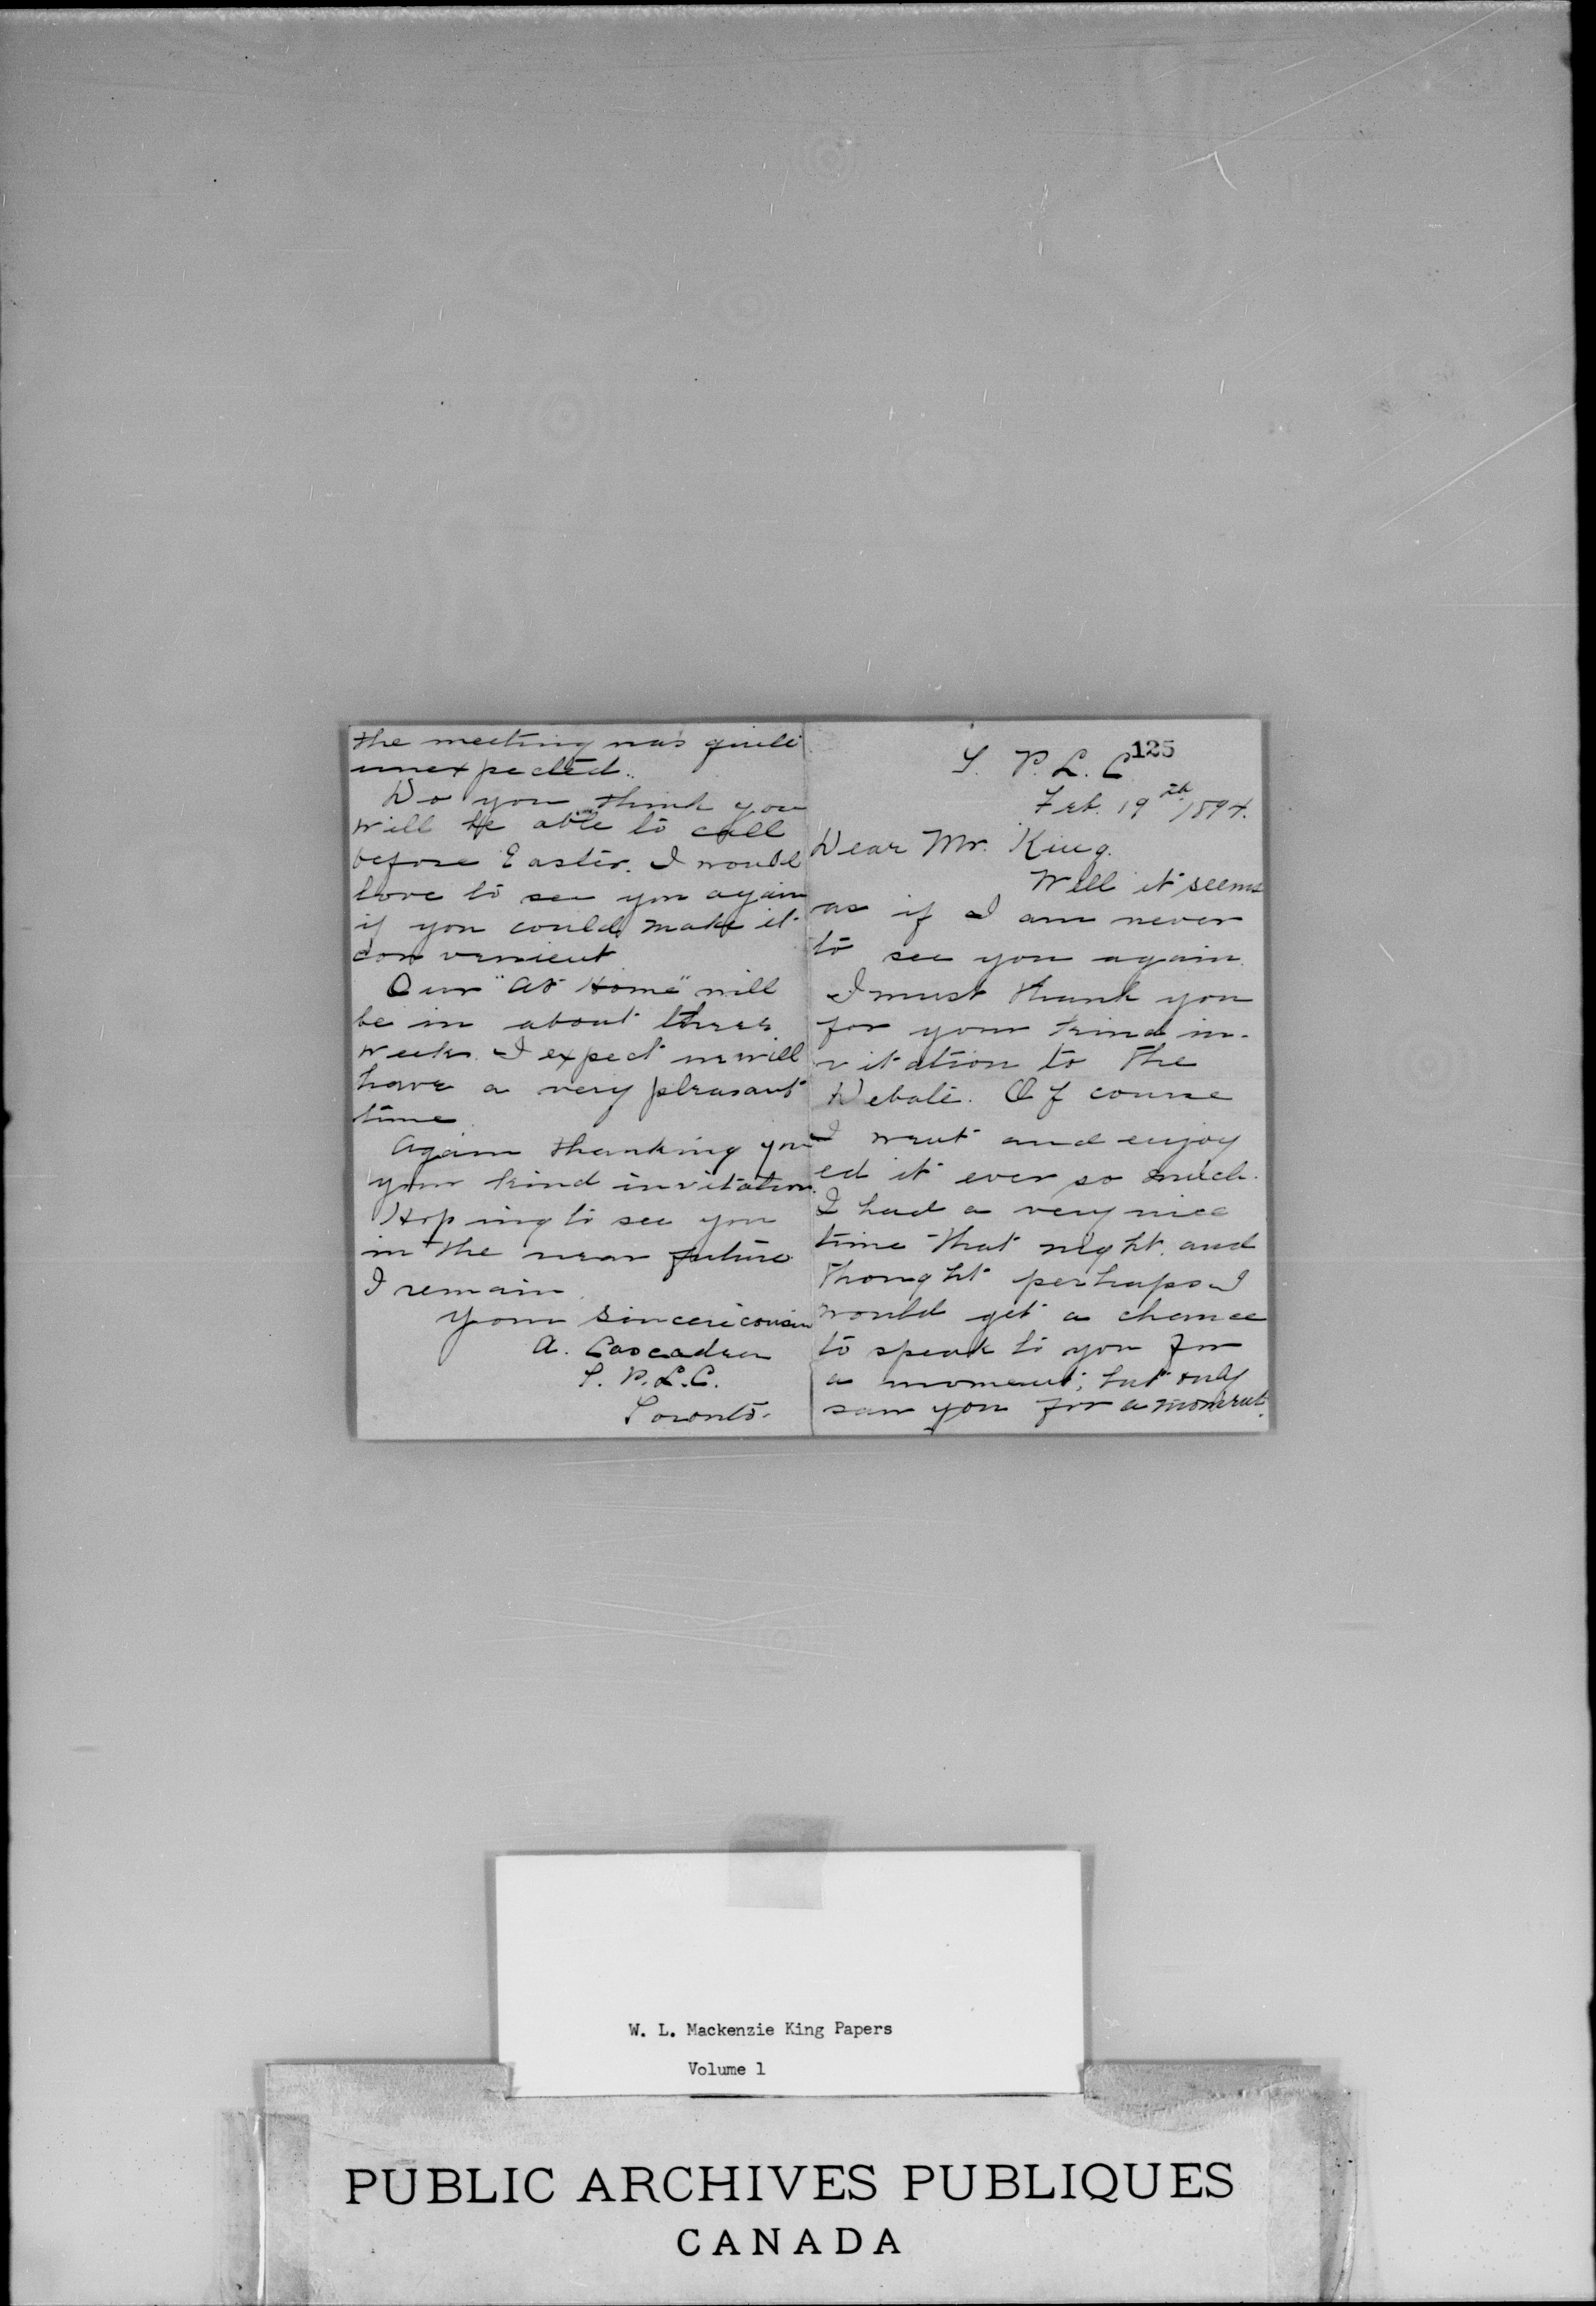 125
T. P. L. C.
Feb. 19th 1894.
Dear Mr. King.
Well it seems
as if I am never
to see you again.
I must thank you
for your kind in-
vitation to the
Debate. Of course
I went and enjoy
ed it ever so much.
I had a very nice
time that night, and
thought perhaps I
would get a chance
to speak to you for
a moment; but only
saw you for a moment.
the meeting was quite
unexpected.
Do you think you
will be able to call
before Easter. I would
love to see you again
if you could make it
convenient
Our "At Home" will
be in about three
weeks. I expect we will
have a very pleasant
time.
Again thanking you
your kind invitation.
Hoping to see you
in the near future
I remain
Your sincere cousin
A. Cascaden
T. P. L. C.
Toronto.
W. L. Mackenzie King Papers
Volume 1
PUBLIC ARCHIVES PUBLIQUES
CANADA